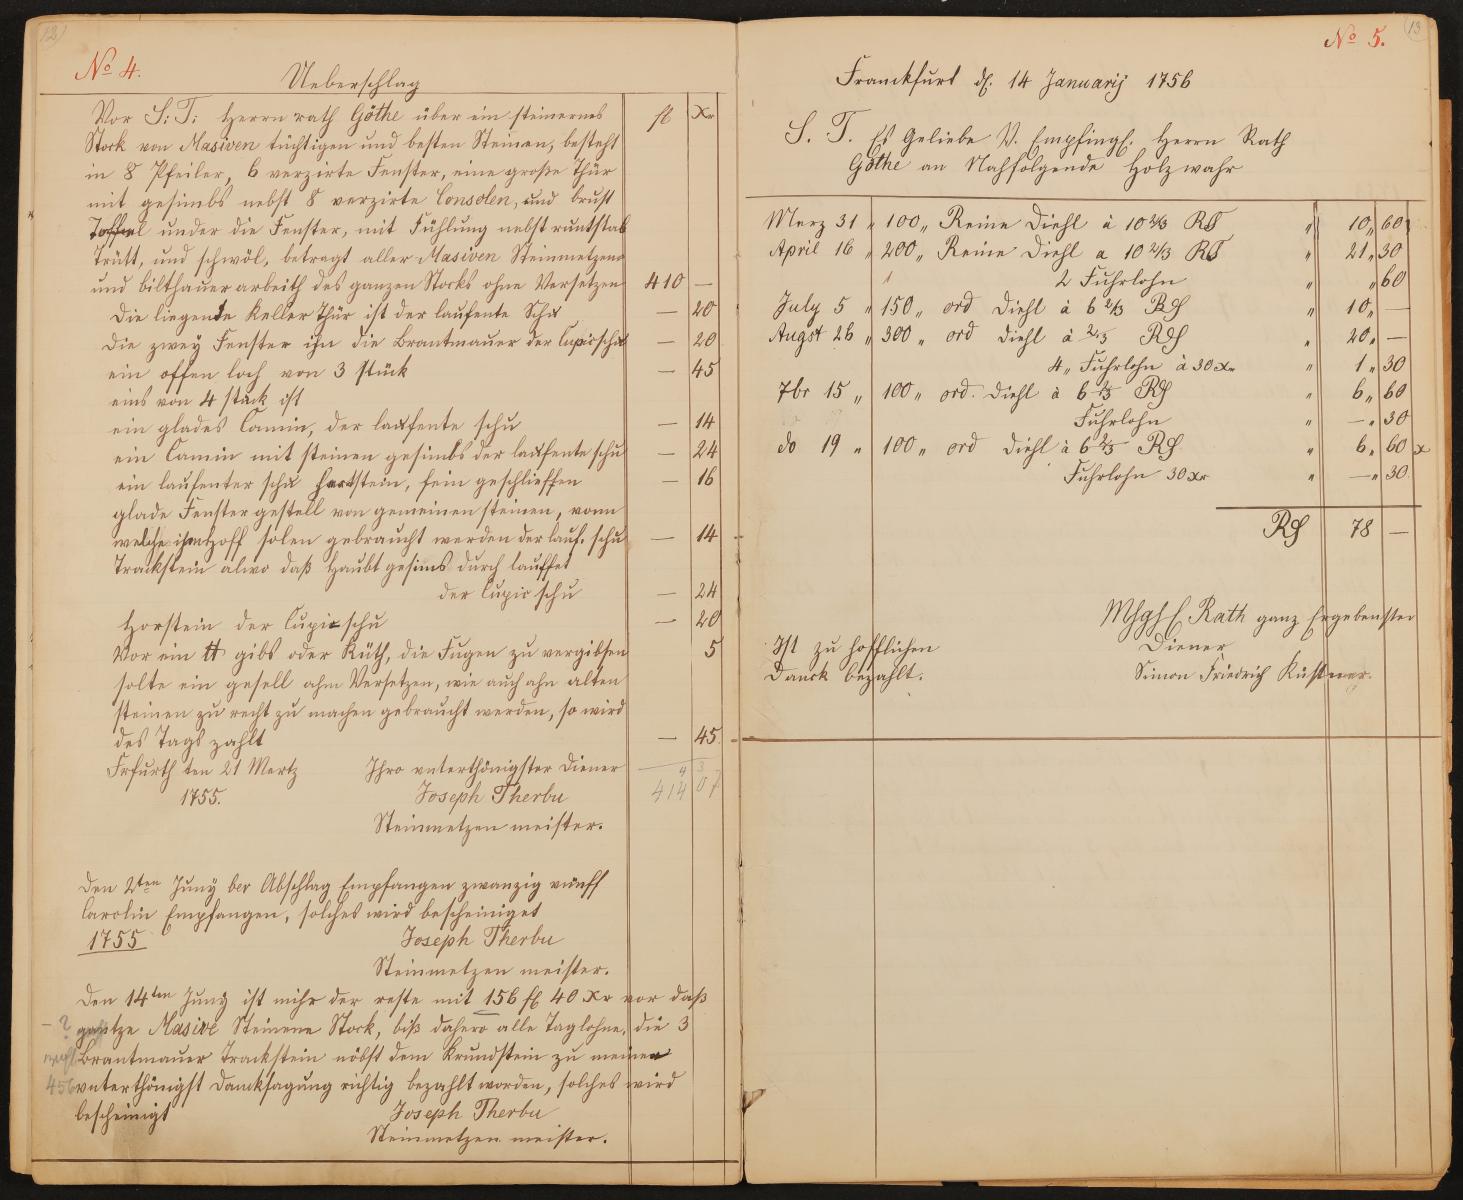 12
No 4.
Ueberschlag
fl
Xr
Vor S: T: Herrn rath Göthe über ein steinernes
Stock von Masiven tüchtigen und besten Steinen, besteht
in 8 Pfeiler, 6 verzirte Fenster, eine große Thür
mit gesimbs nebst 8 verzirte Consolen, und brust
Toffeel under die Fenster, mit Fühlung nebst runtstab
Trüst, und schwöl, betragt aller Masiven Steinmetzen
und bilthauer arbeith des ganzen Stocks ohne Versetzen 410 —
Die liegende Keller Thür ist der laufente Schu — 20
Die zwey Fenster ihn die Brantmauer der Cupicschu — 20
ein offen loch von 3 stück — 45
eins von 4 stück ist
ein glades Camin, der laufente schu — 14
ein Camin mit steinen gesimbs der laufente schu — 24
ein laufenter schu hartstein, fein geschlieffen — 16
glade Fenster gestell von gemeinen steinen, wann
welche ihm Hoff solen gebraucht werden der lauf. schu — 14
Trackstein alwo daß Haubt gesims durch lauffet
der Cupic schu — 24
Horstein der Cupicschu — 20
Vor ein ℔ gibs oder Küth, die Fugen zu vergibsen 5
solte ein gesell ahm Versetzen, wie auch ahn alten
steinen zu recht zu machen gebraucht werden, so wird
des Tags zahlt — 45
Frfurth den 21 Mertz Ihro unterthönigster Diener
1755. Joseph Therbu 414 07
Steinmetzen meister.
Den 2ten Juny ber Abschlag Empfangen zwanzig vünff
Carolin Empfangen, solches wird bescheiniget
1755 Joseph Therbu
Steinmetzen meister.
Den 14ten Juny ist mihr der reste mit 156 fl 40 Xr vor daß
gantze Masive Steinene Stock, biß dahero alle Taglohne, die 3
Brantmauer Trackstein nöbst dem Krundstein zu meinen
456 unterthönigst Dancksagung richtig bezahlt worden, solches wird
bescheinigt Joseph Therbu
Steinmetzen meister.
13
No 5.
Franckfurt d. 14 Januarij 1756
S. T. Es Geliebe V. Empfingl. Herrn Rath
Göthe an Nachfolgende Holz wahr
Merz 31 „ 100 „ Reine Diehl à 10 2/3 Rth „ 10 „ 60
April 16 „ 200 „ Reine Diehl a 10 2/3 Rth „ 21 „ 30
2 Fuhrlohn „ „ 60
July 5 „ 150 „ ord Diehl à 6 2/3 Rth „ 10 „ —
Augst 26 „ 300 „ ord Diehl à 2/3 Rth „ 20 „ —
4 „ Fuhrlohn à 30 Xr „ 1 „ 30
7br 15 „ 100 „ ord. Diehl à 6 2/3 Rth „ 6 „ 60
Fuhrlohn „ — „ 30
do 19 „ 100 „ ord Diehl à 6 2/3 Rth „ 6 „ 60 x
Fuhrlohn 30 Xr „ — „ 30
Rth 78 —
Rath ganz Ergebenster
Ist zu höfflichen Diener
Danck bezahlt. Simon Friedrich Küstner.